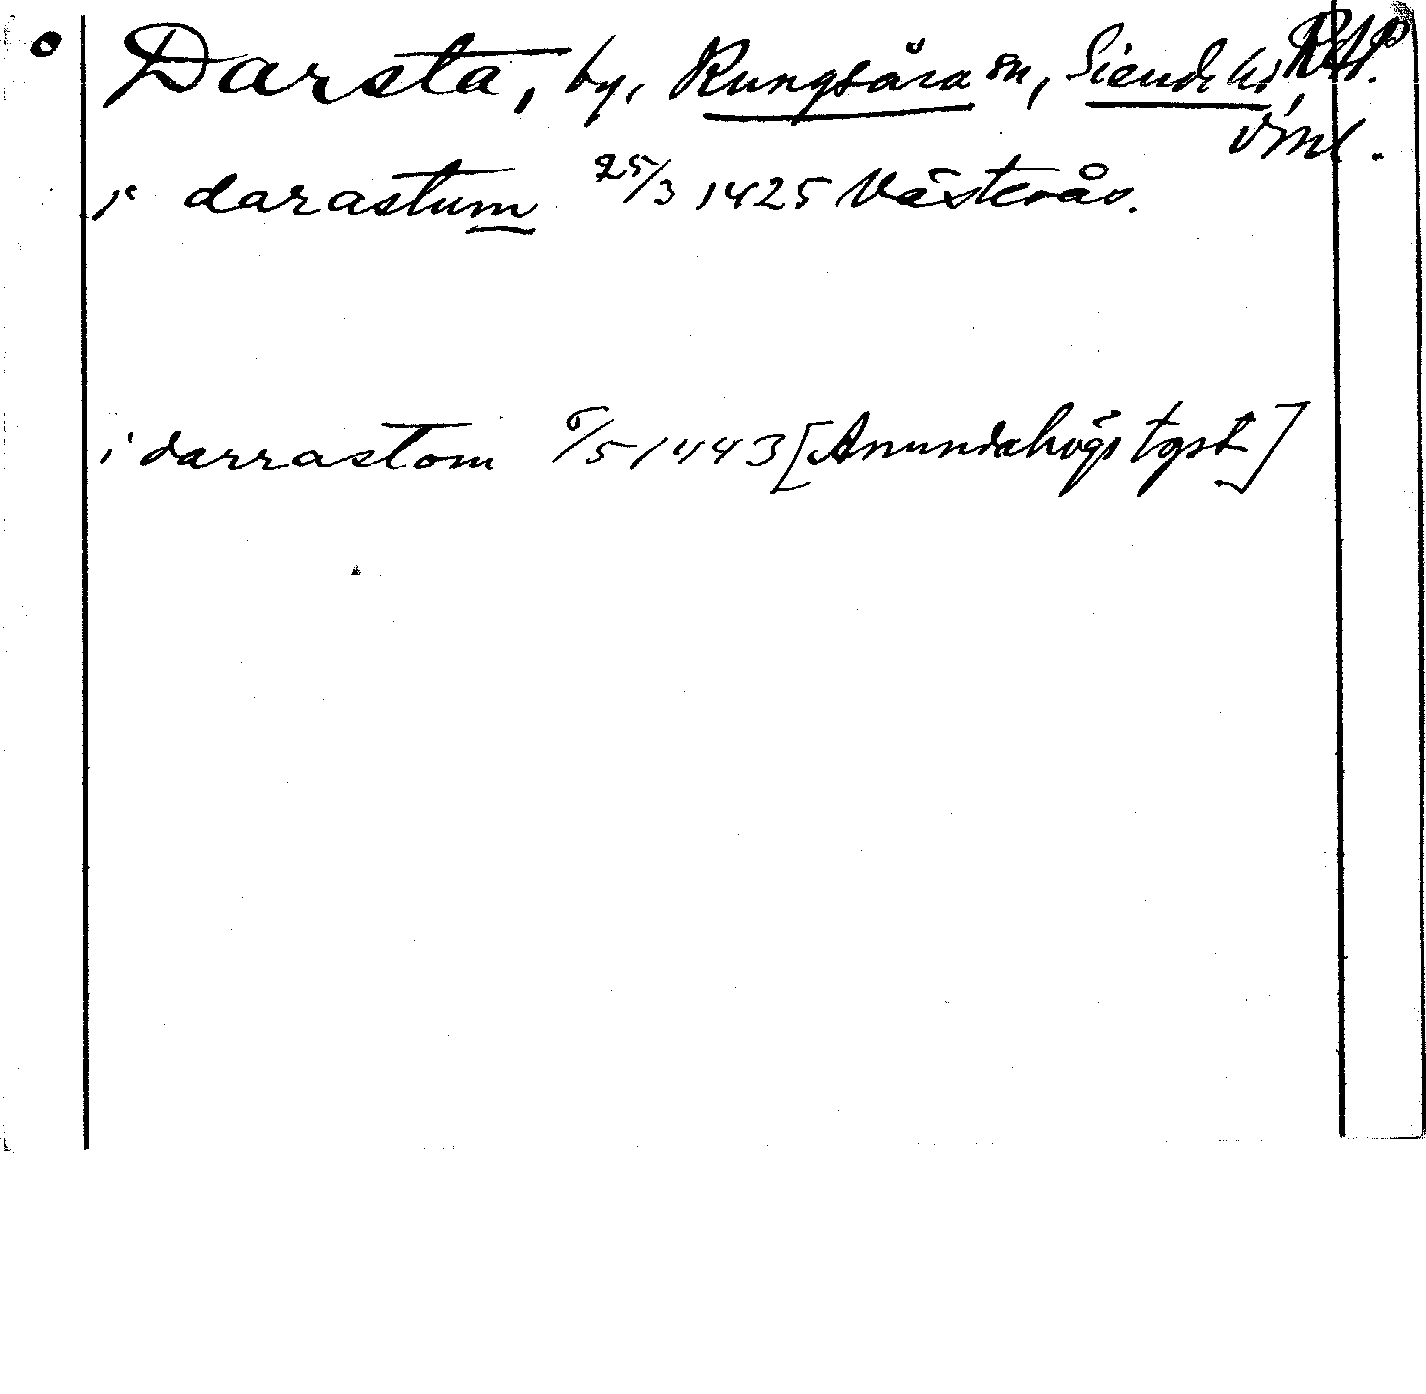 Darsta, by, Kungsåra sn, Siende hd,
Vml.
i darastum 25/3 1425 Västerås.
i darrastom 6/5 1443 [Anundahögs tgst]